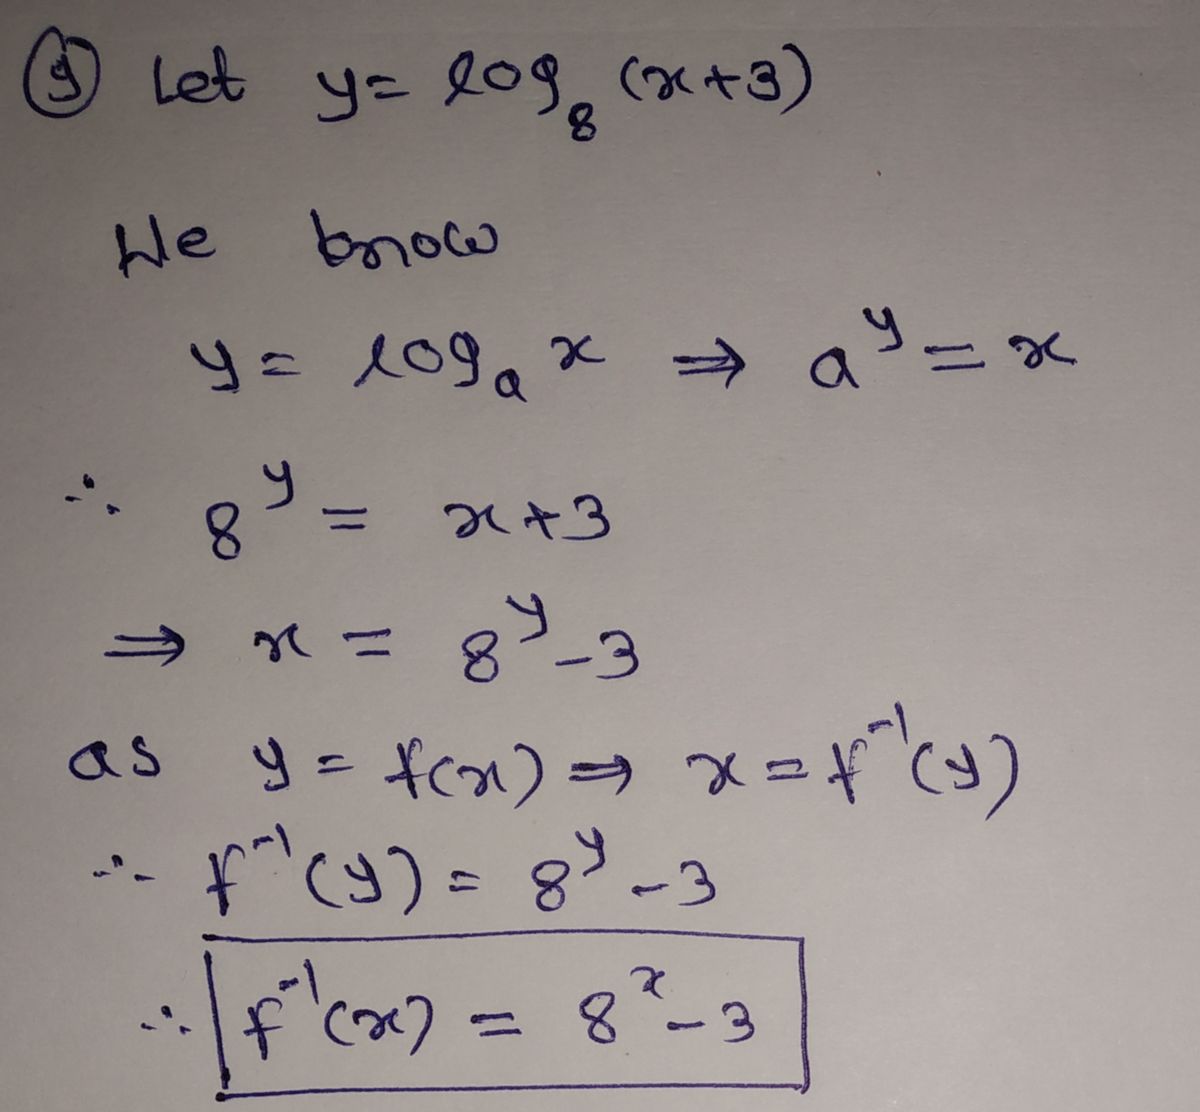 ⑨ Let y = log₈ (x+3)
We know
y = logₐ x ⇒ a^y = x
∴ 8^y = x+3
⇒ x = 8^y - 3
as y = f(x) ⇒ x = f⁻¹(y)
∴ f⁻¹(y) = 8^y - 3
∴ f⁻¹(x) = 8^x - 3